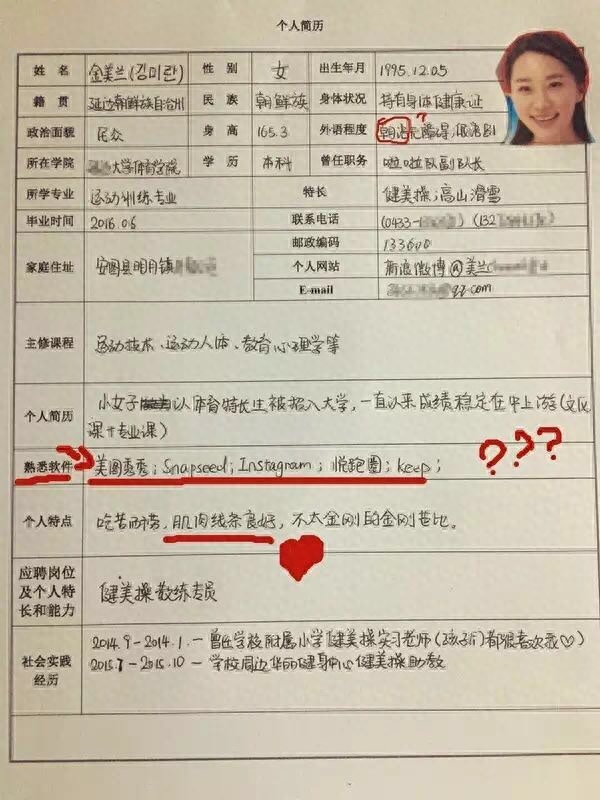 个人简历
姓名 金美兰(김미란) 性别 女 出生年月 1995.12.05
籍贯 延边朝鲜族自治州 民族 朝鲜族 身体状况 持有身体健康证
政治面貌 民众 身高 165.3 外语程度 朝语无障碍;俄语B1 ?
所在学院 大学体育学院 学历 本科 曾任职务 啦啦队副队长
所学专业 运动训练专业 特长 健美操;高山滑雪
毕业时间 2016.06 联系电话 (0433- ) (132 )
邮政编码 133600
家庭住址 安图县明月镇 个人网站 新浪微博@美兰
E-mail qq.com
主修课程 运动技术、运动人体、教育心理学等
小女子 以体育特长生被招入大学,一直以来成绩稳定在中上游(文化
个人简历
课+专业课)
熟悉软件 美图秀秀;Snapseed;Instagram;悦跑圈;keep; ???
个人特点 吃苦耐劳,肌肉线条良好,不太金刚的金刚芭比。
应聘岗位
及个人特 健美操教练专员
长和能力
2014.9-2014.1.-曾任学校附属小学健美操实习老师(孩子们都很喜欢我♡)
社会实践
经历
2015.7-2015.10-学校周边华的健身中心健美操助教